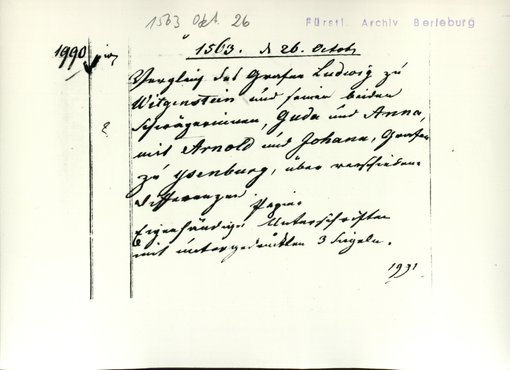 1563 Okt. 26
Fürstl. Archiv Berleburg
1990
1563. d 26. Octob.
Vergleich des Grafen Ludwig zu
Witgenstein und seiner beiden
Schwägerinnen, Guda und Anna,
mit Arnold und Johann, Grafen
zu Ysenburg, über verschiedene
Differenzen
Papier
Eigenhändige Unterschriften
mit untergedruckten 3 Siegeln.
1991